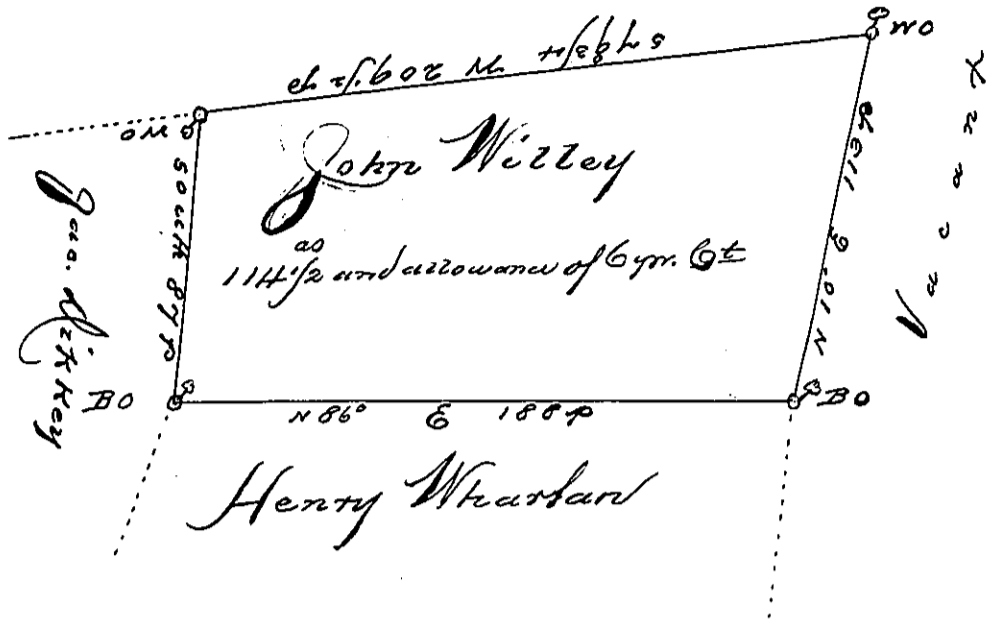 S 78 3/4 W 209 1/2 p
WO
WO
John Willey
as
114 1/2 and allowance of 6 pr. Ct
South 87 p
N 10° E 113 p
Vacant
BO
N 86° E 188 p
BO
Henry Wharton